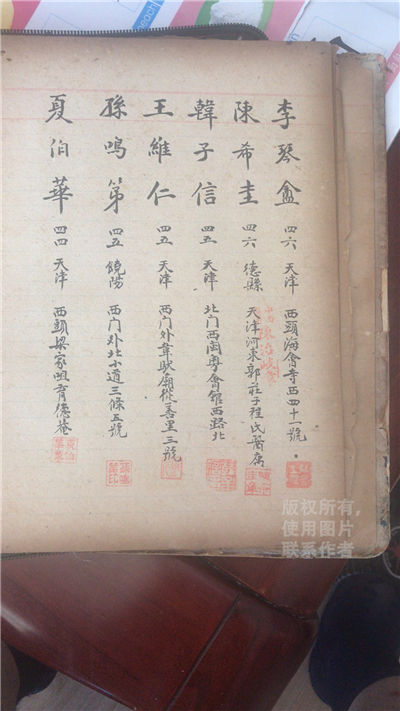 李琴盦 四六 天津 西頭海會寺西四十一號.
陳希圭 四六 德縣 天津河東郭莊子程氏醫腐
韓子信 四五 天津 北门西閩粤會館西路北
王維仁 四五 天津 西门外韋馱廟從善里三號
孫鳴第 四五 饒陽 西门外北小道三條五號
夏伯華 四四 天津 西頭梁家咀育德菴
版权所有,
使用图片
联系作者
each